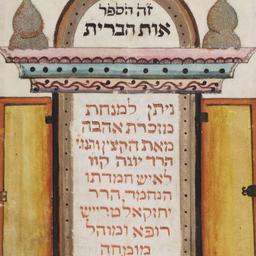 זה הספר
אות הברית
ניתן למנחת
מזכרת אהבה
מאת הקצין והנגיד
הרר יונה קוו
לאיש חמדתו
הנחמד, הרר
יחזקאל טרייש
רופא ומוהל
מומחה